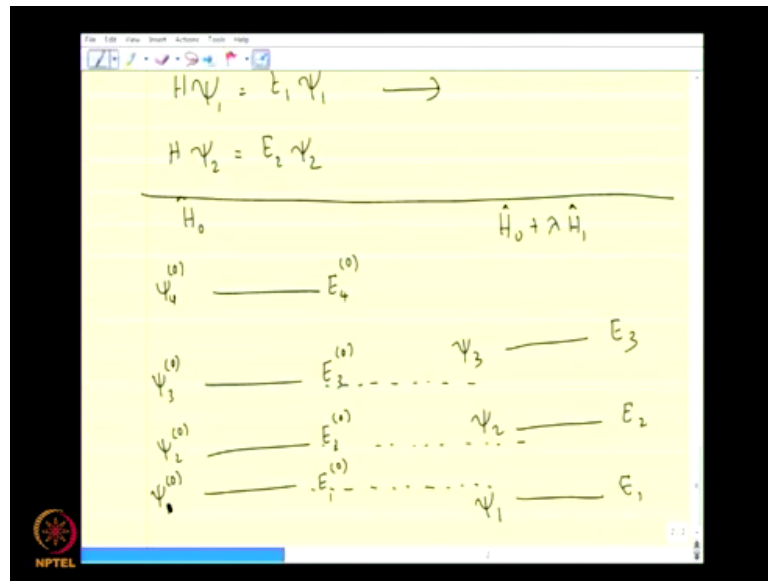 File Edit View Insert Actions Tools Help
Hψ₁ = E₁ψ₁ →
Hψ₂ = E₂ψ₂
Ĥ₀ Ĥ₀ + λĤ₁
ψ₄⁽⁰⁾ E₄⁽⁰⁾
ψ₃ E₃
ψ₃⁽⁰⁾ E₃⁽⁰⁾
ψ₂ E₂
ψ₂⁽⁰⁾ E₂⁽⁰⁾
ψ⁽⁰⁾ E₁⁽⁰⁾
ψ₁ E₁
NPTEL